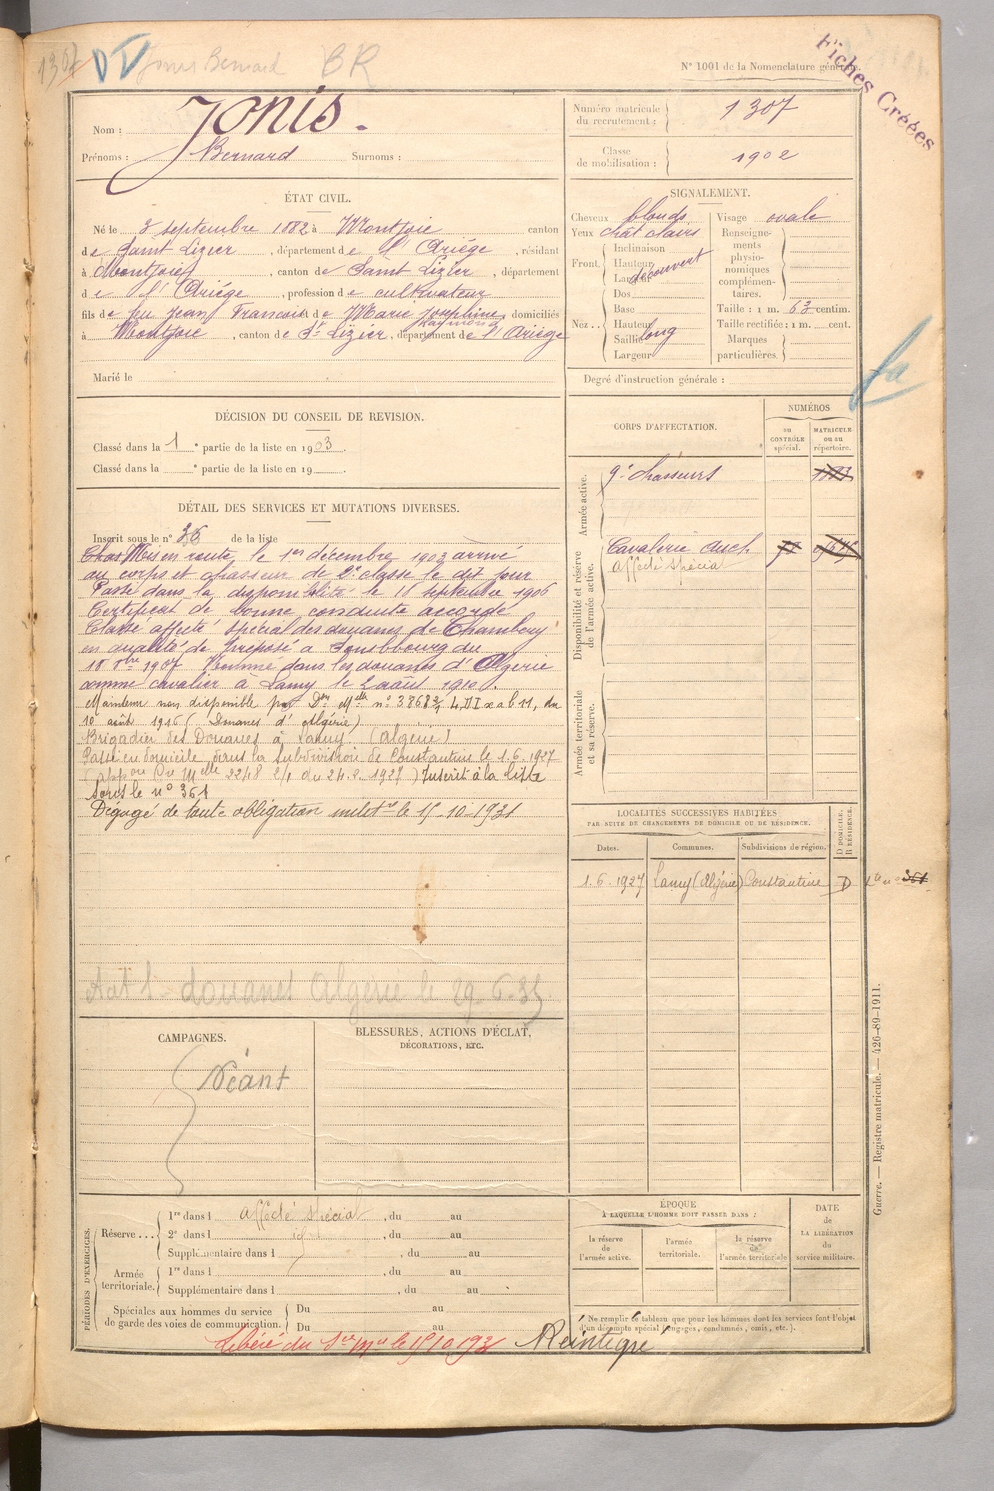 1307 Jonis Bernard BR
Fiches Créées
N° 1001 de la Nomenclature générale.
Nom : Jonis.
Prénoms : Bernard Surnoms :
Numéro matricule du recrutement : 1307
Classe de mobilisation : 1902
ÉTAT CIVIL.
Né le 3 septembre 1882 à Montjoie canton
de Saint Lizier, département de l'Ariége, résidant
à Montjoie, canton de Saint Lizier, département
de l'Ariége, profession de cultivateur
fils de feu Jean François et de Marie Josephine domiciliés
à Montjoie, canton de St Lizier, département de l'Ariége
Marié le
SIGNALEMENT.
Cheveux blonds Visage ovale
Yeux chat clairs
Front. Inclinaison
Hauteur
Largeur découvert
Renseignements physionomiques complémentaires.
Dos
Nez.. Base
Hauteur
Saillie long
Largeur
Taille : 1 m. 63 centim.
Taille rectifiée : 1 m. cent.
Marques particulières.
Degré d'instruction générale :
DÉCISION DU CONSEIL DE REVISION.
Classé dans la 1e partie de la liste en 1903.
Classé dans la e partie de la liste en 19
DÉTAIL DES SERVICES ET MUTATIONS DIVERSES.
Inscrit sous le n° 36 de la liste
Mis en route le 1er décembre 1903 arrivé
au corps et chasseur de 2e classe le dit jour
Passé dans la disponibilité le 18 septembre 1906
Certificat de bonne conduite accordé
Classé affecté spécial des douanes de Chambéry
en qualité de préposé à
1907 Nommé dans les douanes d'Algerie
comme cavalier à Lamy le 2 août 1910.
Maintenu non disponible par Don Melle n° du
10 août 1916 (Douanes d'Algérie)
Brigadier des Douanes à Lamy (Algérie)
Passé en domicile dans la Subdivision de Constantine le 1.6.1927
2248 2/1 du 24.8.1927) Inscrit à la liste
sous le n° 361
Dégagé de toute obligation milre le 15-10-1931
douanes Algérie le 29-6-35
CORPS D'AFFECTATION.
NUMÉROS
au CONTRÔLE spécial.
MATRICULE ou au répertoire.
Armée active.
9e chasseurs
Disponibilité et réserve de l'armée active.
Cavalerie Auch
affecté spécial
Armée territoriale et sa réserve.
LOCALITÉS SUCCESSIVES HABITÉES
PAR SUITE DE CHANGEMENTS DE DOMICILE OU DE RÉSIDENCE.
Dates. Communes. Subdivisions de région. D DOMICILE. R RÉSIDENCE.
1.6.1927 Lamy (Algérie) Constantine D 361
CAMPAGNES.
Néant
BLESSURES, ACTIONS D'ÉCLAT,
DÉCORATIONS, ETC.
PÉRIODES D'EXERCICES.
Réserve.... 1re dans l affecté spécial, du au
2e dans l, du au
Supplémentaire dans l, du au
Armée territoriale. 1re dans l, du au
Supplémentaire dans l, du au
Spéciales aux hommes du service de garde des voies de communication. Du au
Du au
ÉPOQUE
À LAQUELLE L'HOMME DOIT PASSER DANS :
la réserve de l'armée active.
l'armée territoriale.
la réserve de l'armée territoriale
DATE de LA LIBÉRATION du service militaire.
Ne remplir ce tableau que pour les hommes dont les services font l'objet d'un décompte spécial (engagés, condamnés, omis, etc.).
Libéré du Sce Mre le 15/10 1931 Réintégré
Guerre. — Registre matricule. — 426-89-1911.